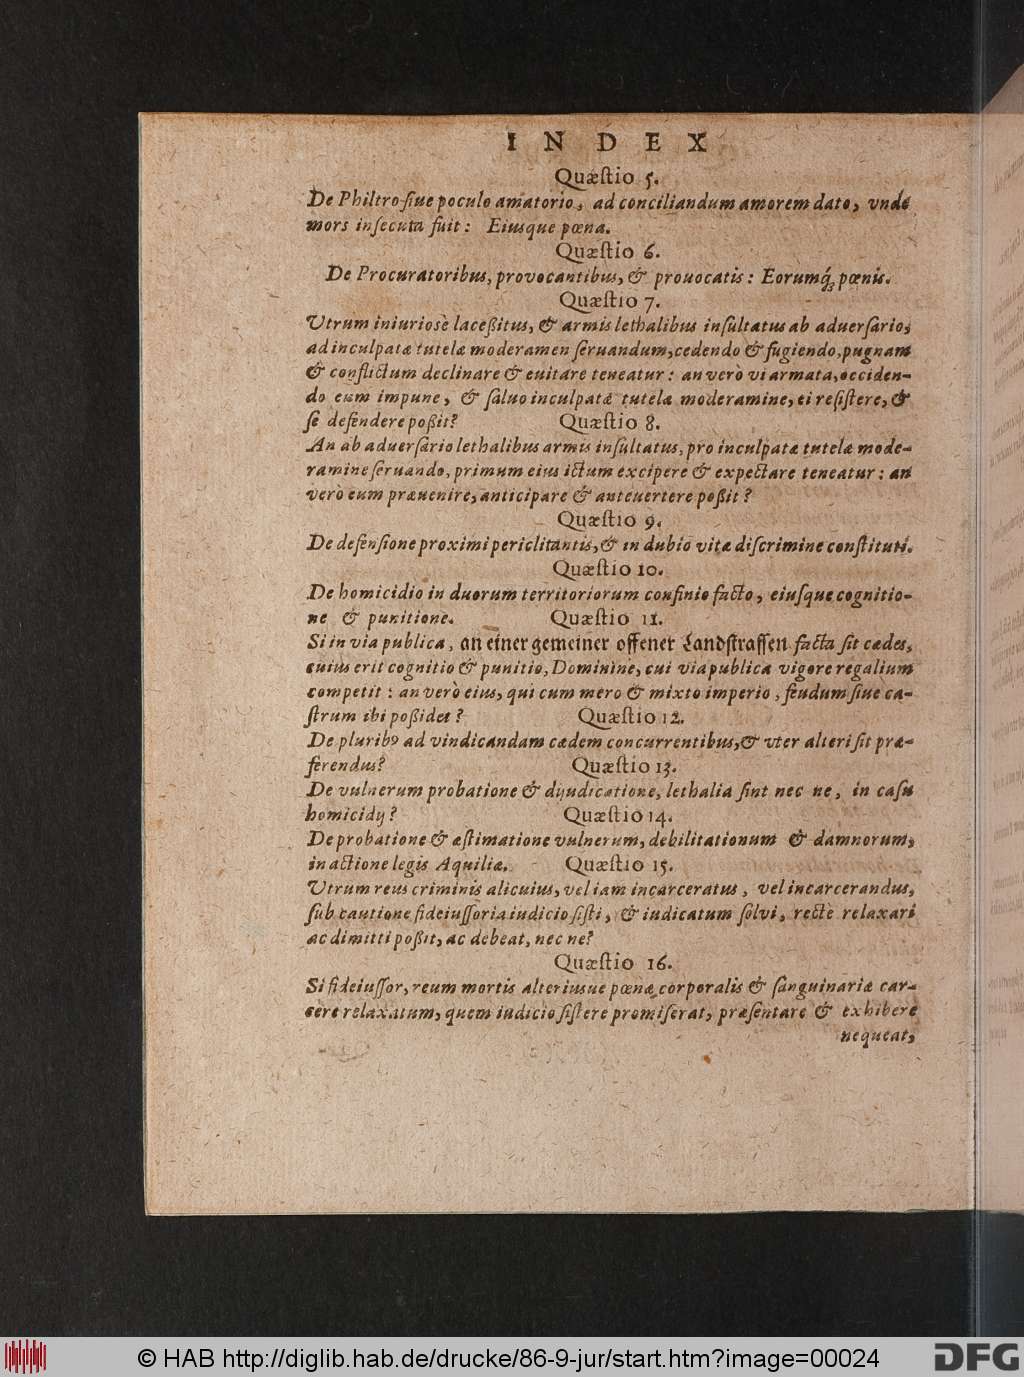 INDEX
Quæſtio 5.
De Philtro ſiue poculo amatorio, ad conciliandum amorem dato, vnde
mors inſecuta fuit: Eiusque pœna.
Quæſtio 6.
De Procuratoribus, provocantibus, & prouocatis: Eorumq́ꝫ pœnis.
Quæſtio 7.
Utrum iniuriosè laceßitus, & armis lethalibus inſultatus ab aduerſario,
ad inculpatæ tutelæ moderamen ſeruandum, cedendo & fugiendo, pugnam
& conflictum declinare & euitare teneatur: an verò vi armata, occiden-
do eum impune, & ſaluo inculpatæ tutelæ moderamine, ei reſiſtere, &
ſe defendere poßit? Quæſtio 8.
An ab aduerſario lethalibus armis inſultatus, pro inculpatæ tutelæ mode-
ramine ſeruando, primum eius ictum excipere & expectare teneatur: an
verò eum præuenire, anticipare & anteuertere poßit?
Quæſtio 9.
De defenſione proximi periclitantis, & in dubio vitæ diſcrimine conſtituti.
Quæſtio 10.
De homicidio in duorum territoriorum confinio facto, eiuſque cognitio-
ne & punitione. Quæſtio 11.
Si in via publica, an einer gemeiner offener Landſtraſſen facta ſit cædes,
cuius erit cognitio & punitio, Dominine, cui via publica vigore regalium
competit: an verò eius, qui cum mero & mixto imperio, feudum ſiue ca-
ſtrum ibi poßidet? Quæſtio 12.
De pluribꝰ ad vindicandam cædem concurrentibus, & vter alteri ſit præ-
ferendus? Quæſtio 13.
De vulnerum probatione & dijudicatione, lethalia ſint nec ne, in caſu
homicidij? Quæſtio 14.
De probatione & æſtimatione vulnerum, debilitationum & damnorum,
in actione legis Aquiliæ. Quæſtio 15.
Utrum reus criminis alicuius, vel iam incarceratus, vel incarcerandus,
ſub cautione fideiuſſoria iudicio ſiſti, & iudicatum ſolvi, rectè relaxari
ac dimitti poßit, ac debeat, nec ne?
Quæſtio 16.
Si fideiuſſor, reum mortis alteriusue pœnæ corporalis & ſanguinariæ car-
cere relaxatum, quem iudicio ſiſtere promiſerat, præſentare & exhibere
nequeat,
© HAB http://diglib.hab.de/drucke/86-9-jur/start.htm?image=00024
DFG